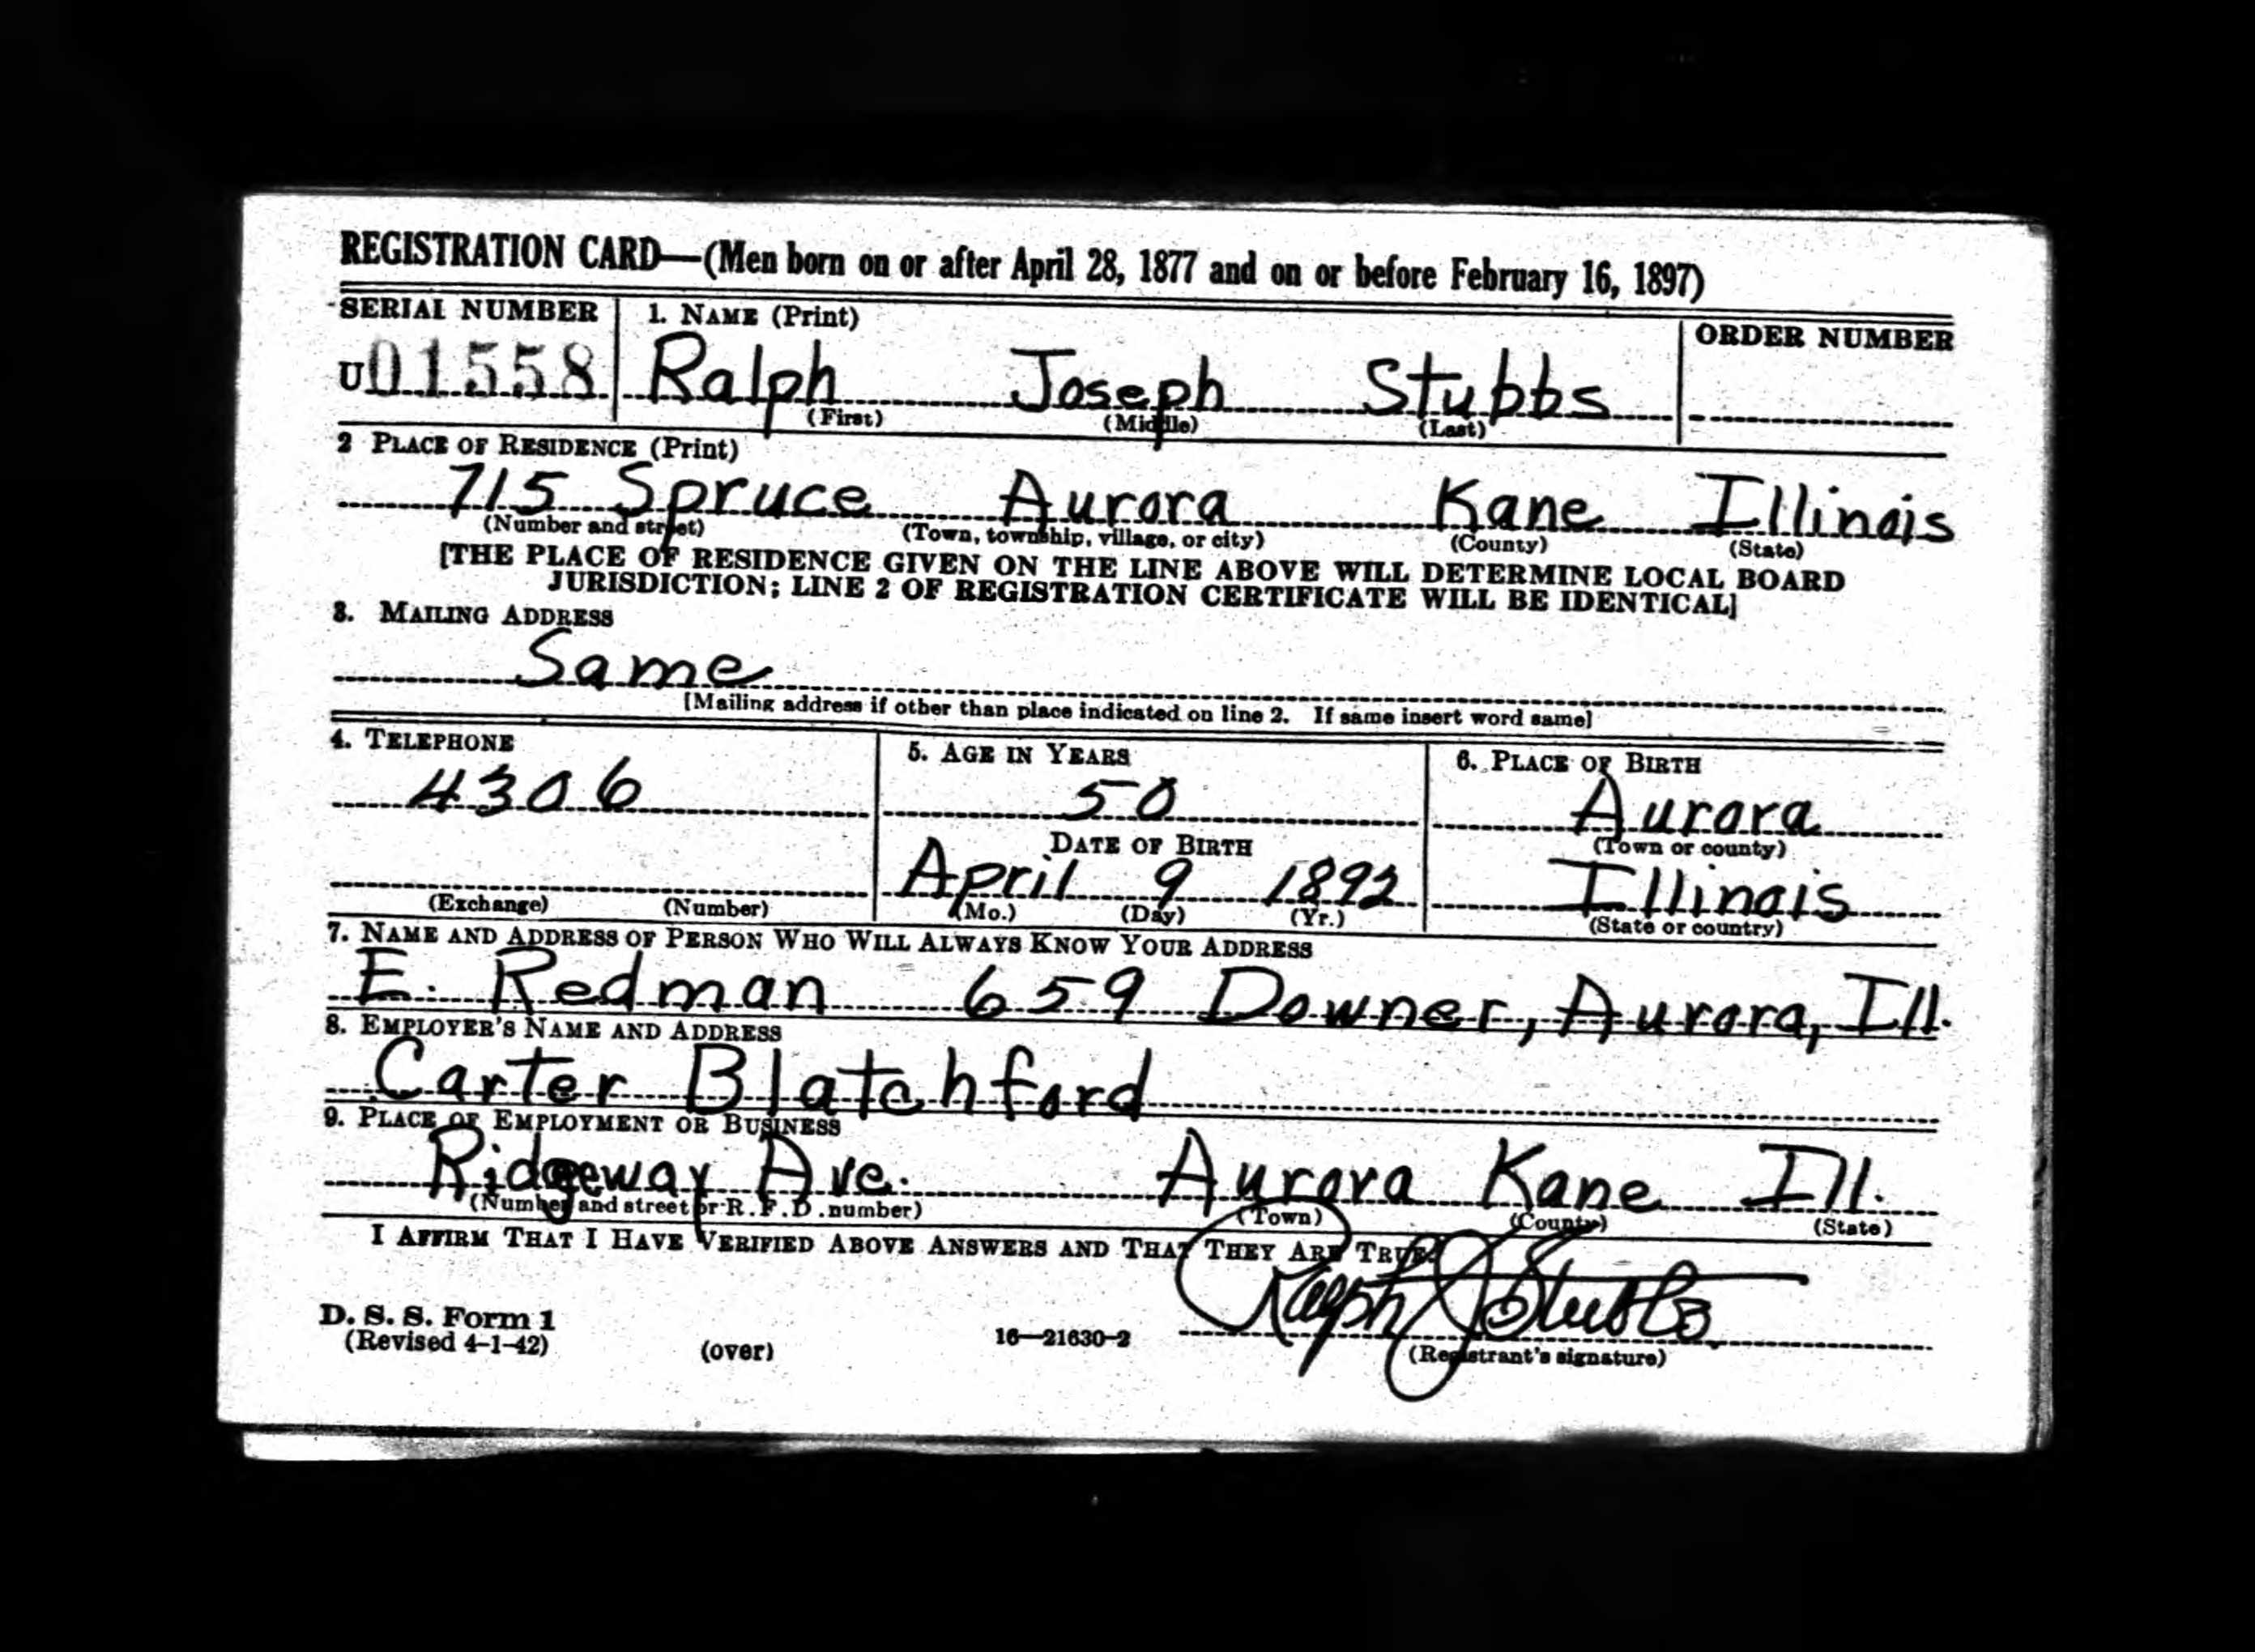 REGISTRATION CARD—(Men born on or after April 28, 1877 and on or before February 16, 1897)
SERIAL NUMBER 1. NAME (Print) ORDER NUMBER
U 01558 Ralph Joseph Stubbs
(First) (Middle) (Last)
2 PLACE OF RESIDENCE (Print)
715 Spruce Aurora Kane Illinois
(Number and street) (Town, township, village, or city) (County) (State)
[THE PLACE OF RESIDENCE GIVEN ON THE LINE ABOVE WILL DETERMINE LOCAL BOARD
JURISDICTION; LINE 2 OF REGISTRATION CERTIFICATE WILL BE IDENTICAL]
3. MAILING ADDRESS
Same
[Mailing address if other than place indicated on line 2. If same insert word same]
4. TELEPHONE 5. AGE IN YEARS 6. PLACE OF BIRTH
4306 50 Aurora
DATE OF BIRTH (Town or county)
April 9 1892 Illinois
(Exchange) (Number) (Mo.) (Day) (Yr.) (State or country)
7. NAME AND ADDRESS OF PERSON WHO WILL ALWAYS KNOW YOUR ADDRESS
E. Redman 659 Downer, Aurora, Ill.
8. EMPLOYER'S NAME AND ADDRESS
Carter Blatchford
9. PLACE OF EMPLOYMENT OR BUSINESS
Ridgeway Ave. Aurora Kane Ill.
(Number and street or R. F. D. number) (Town) (County) (State)
I AFFIRM THAT I HAVE VERIFIED ABOVE ANSWERS AND THAT THEY ARE TRUE.
Ralph J Stubbs
D. S. S. Form 1
(Revised 4-1-42) (over) 16—21630-2 (Registrant's signature)